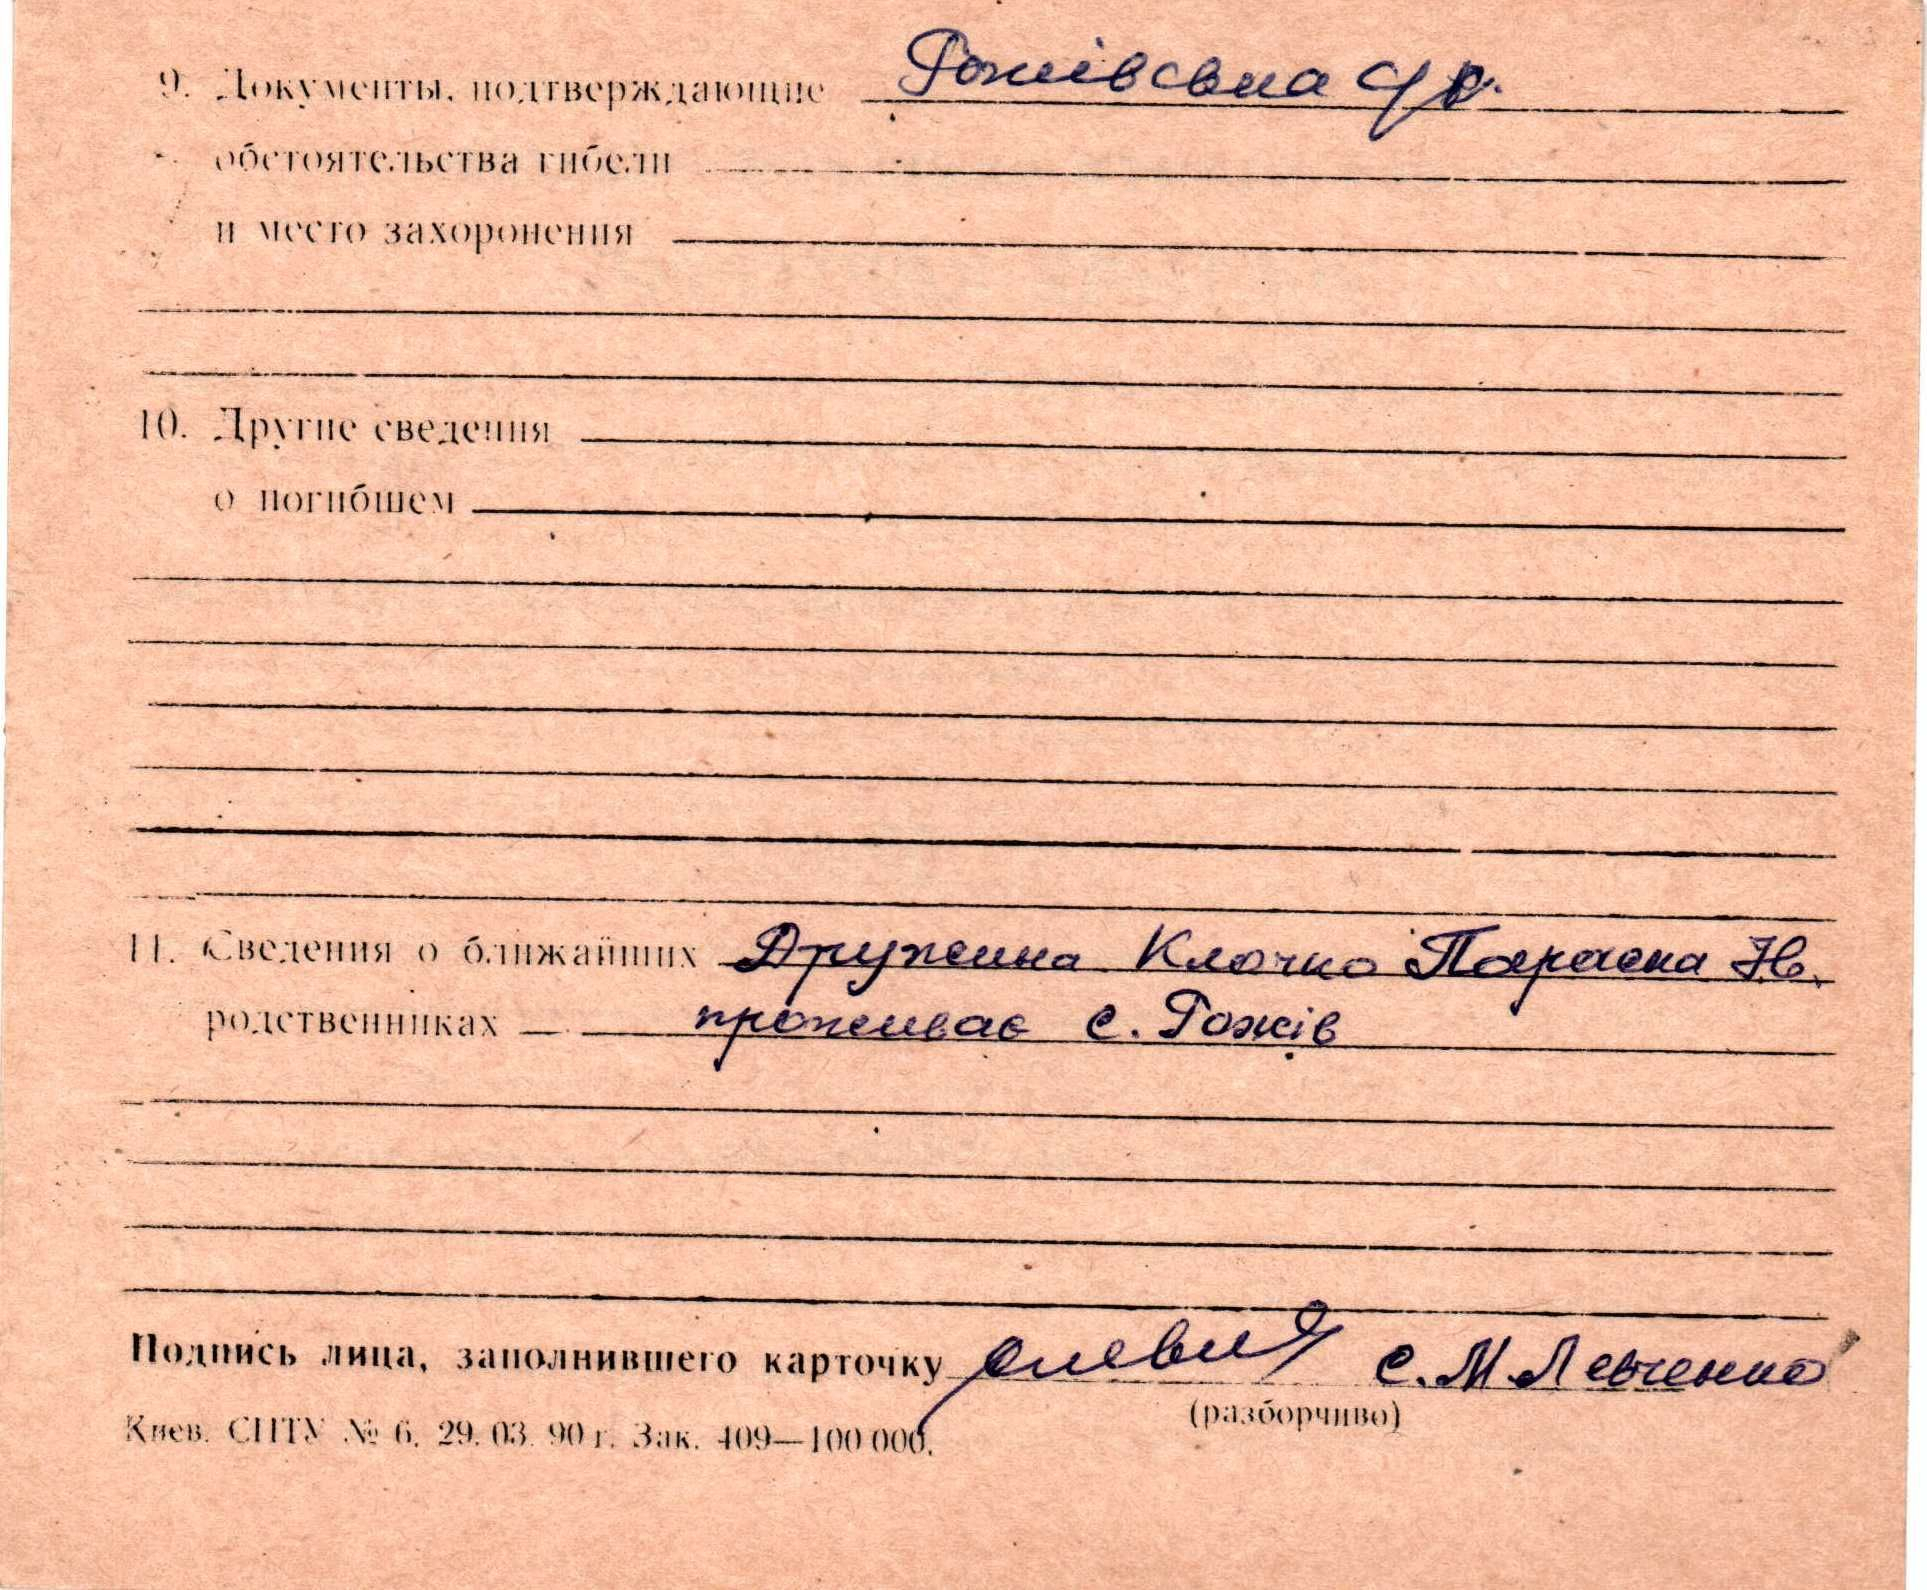 9. Документы, подтверждающие Рожівська с/р.
обстоятельства гибели
и место захоронения
10. Другие сведения
о погибшем
11. Сведения о ближайших Дружина Клочко Параска Ів.
родственниках проживає с. Рожів
Подпись лица, заполнившего карточку С. М Левченко
(разборчиво)
Киев. СПТУ № 6. 29. 03. 90 г. Зак. 409—100 000.